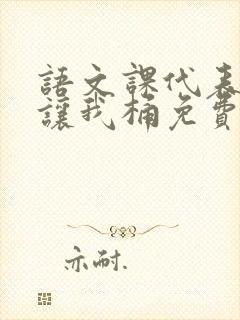 語文課代表
讓我桶免費
亦耐.